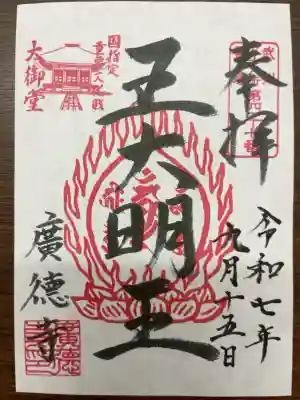 奉拝
令和七年
九月十五日
五大明王
国指定
重要文化財
大御堂
廣德寺